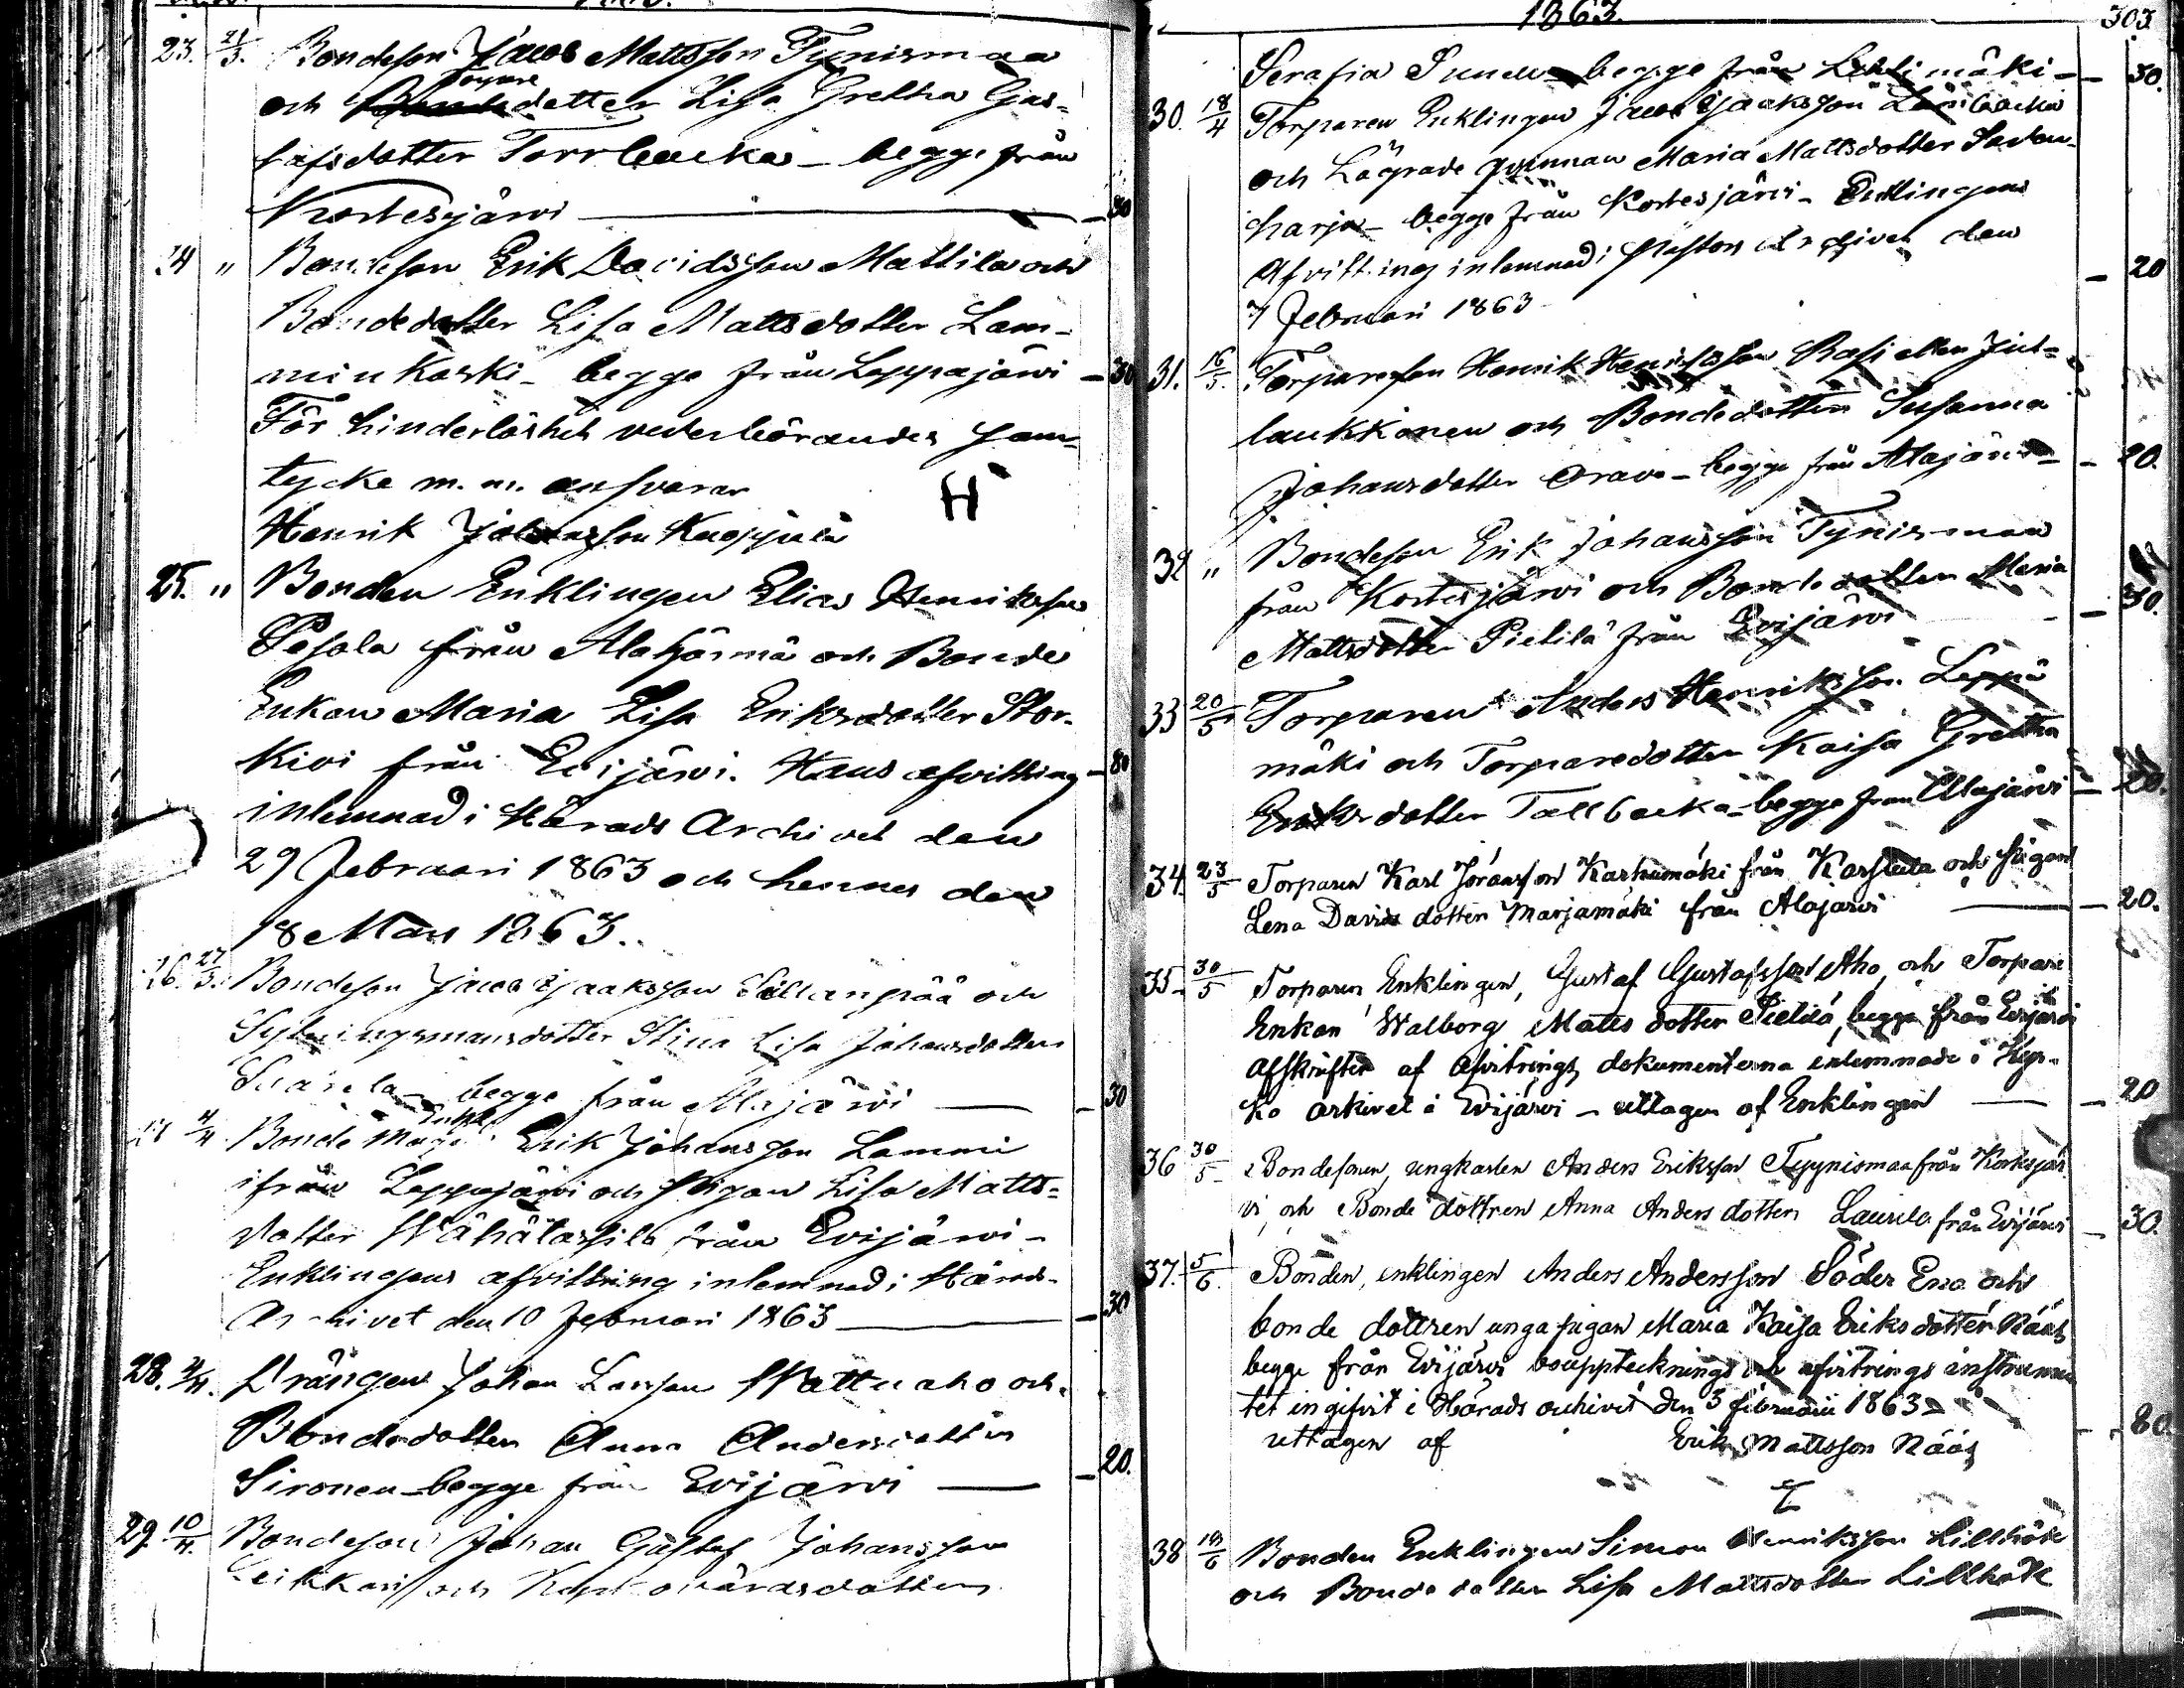 23. 21/3. Bondeson Jacob Mattsson Tynismaa
Torpare
och dotter Lisa Gretha Gus-
tafsdotter Torrbacka – begge från
Kortesjärvi — 30
24 " Bondeson Erik Davidsson Mattila och
Bondedotter Lisa Mattsdotter Lam-
minkoski – begge från Lappajärvi – 30
För hinderlöshet vederbörandes sam-
tycke m. m. ansvarar
Henrik Johansson H
25. " Bonden Enklingen Elias Henriksson
Pesola från Alahärmä och Bonde
Enkan Maria Lisa Eriksdotter Stor-
kivi från Evijärvi. Hans afvittring – 80
inlemnad i Härads Archivet den
29 Februari 1863 och hennes den
18 Mars 1863.
26. 27/3. Bondeson Jacob Jaaksson Sillanpää och
Sytningsmansdotter Stina Lisa Johansdotter
begge från Alajärvi — – 30
Enkl
4/4. Bonde Erik Johansson Lammi
ifrån Lappajärvi och Pigan Lisa Matts-
dotter Wähätassila från Evijärvi –
Enklingens afvittring inlemnad i Härads-
Archivet den 10 Februari 1863 — – 30
28. 4/4. Drängen Johan Larsson Wattuaho och
Bondedotter Anna Andersdotter
Sironen – begge från Evijärvi — – 20.
29. 10/4. Bondeson Johan Gustaf Johansson
och dotter
1863. 303.
Serafia Sunde – begge från Lehtimäki – – 30.
30. 18/4 Torparen Enklingen Jacob Jaaksson Länsbacka
och Lägrade qvinnan Maria Mattsdotter Saden-
harju – begge från Kortesjärvi – Enklingens
Afvittring inlemnad i Pastors Archivet den – 20
7 Februari 1863
31. 16/5. Torpareson Henrik Henriksson Rasi eller Jus-
laukkonen och Bondedotter Susanna
Johansdotter Orava – begge från Alajärvi – – 20.
32 " Bondeson Erik Johansson Tynismaa
från Kortesjärvi och Bondedotter Maria
Mattsdotter Pietilä från Evijärvi – 30.
33 20/5 Torparen Anders Henriksson Leppä
mäki och Torparedotter Kaisa Gretha
Eriksdotter Tallbacka – begge från Alajärvi – 20.
34. 23/5 Torparen Karl Jöransson Karhumäki från Karstula och Pigan
Lena Davids dotter Marjamäki från Alajärvi — – 20.
35. 30/5 Torparen, Enklingen, Gustaf Gustafsson Aho, och Torpare
Enkan Walborg Matts dotter Pietilä, begge från Evijärvi
afskrifter af afvitrings dokumenterna inlemnade i Kyr-
ko arkivet i Evijärvi – uttagen af Enklingen — – 20
36 30/5 Bondesonen, ungkarlen Anders Eriksson Tyynismaa från Kortesjär
vi, och Bonde dottren Anna Anders dotter Laurila från Evijärvi – 30.
37. 5/6. Bonden, enklingen Anders Andersson Söder Ena och
bonde dottren unga pigan Maria Kaisa Eriks dotter Nääs
begge från Evijärvi bouppteknings och afvitrings instrumen
tet ingifvit i Härads archivet den 3 februarii 1863 –
uttagen af Erik Mattsson Nääs – 80
38 19/6 Bonden Enklingen Simon Henriksson Lillkåll
och Bondedotter Lisa Mattsdotter Lillkåll